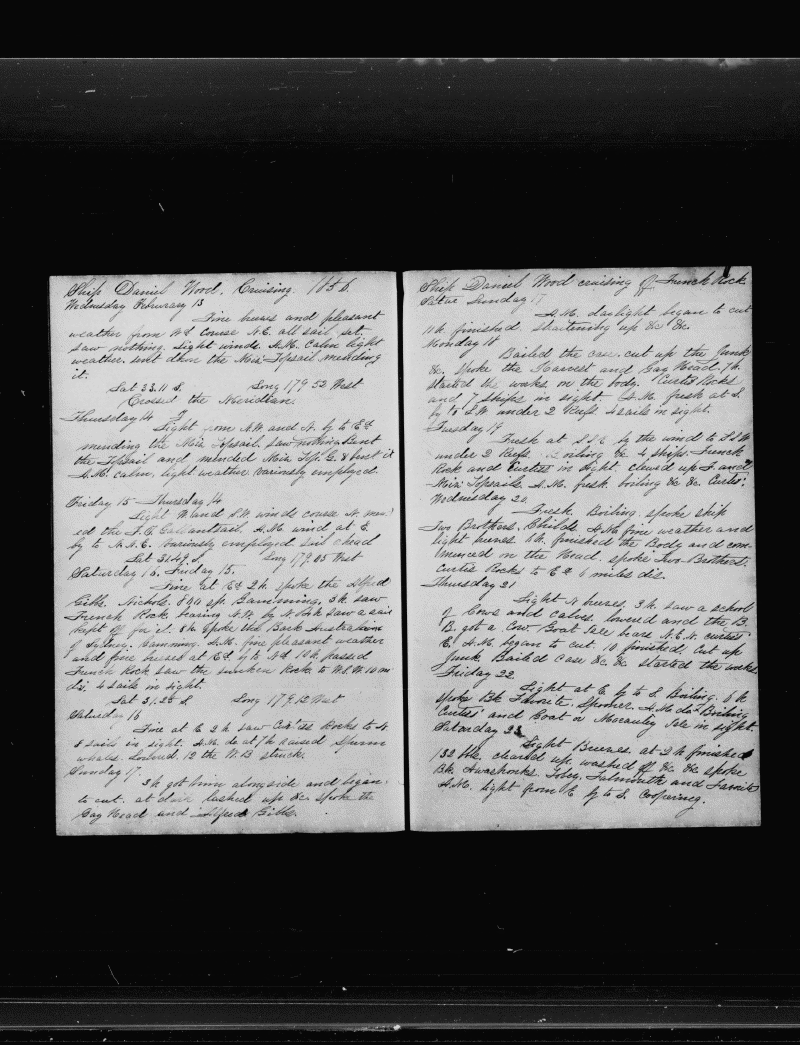 Ship Daniel Wood. Cruising. 1856.
Wednesday February 13
Fine breeses and pleasant
weather from Wd Course N.E. all sail set.
saw nothing. light winds. A.M. calm light
weather. sent down the Miz Topsail mending
it.
Lat 33.11 S. Long 179.52 West
Crossed the Meridian
Thursday 14
Light from N.W. and N. by to Ed
mending the Miz Topsail. saw nothing Bent
the Topsail and mended Miz Top. G. & bent it
A.M. calm, light weather variously employed.
Friday 15 Thursday 14
Light W. and S.W. winds course N. men
ed the F. T. Gallantsail. A.M. wind at E.
by to N.N.E. variously employed sail ahead
Lat 31.49 S. Long 179.05 West
Saturday 16. Friday 15.
Fine at Ed 2h spoke the Alfred
Gibbs. Nichols. 800 sp. Gamming. 3h saw
French Rock bearing N.W. by N. saw a sail
kept off for it. 8h spoke the Bark Australian
of Sydney. Gamming. A.M. fine pleasant weather
and fine breeses at Ed. by to Nd 10h passed
French Rock saw the sunken Rock to W.S.W. 10 m
dis. 4 sails in sight.
Lat 31.25 S Long 179.12 West
Saturday 16
Fine at E 2h saw Curtiss Rocks to N
8 sails in sight. A.M. do at 7h raised Sperm
whales. Lowered, 12 the W.B. struck.
Sunday 17.
3h got him alongside and began
to cut. at dark lashed up &c. spoke the
Gay Head and Alfred Gibbs.
Ship Daniel Wood cruising off French Rock
Sunday 17
A.M. daylight began to cut
11h finished. shortening up &c &c.
Monday 18
Bailed the case, cut up the Junk
&c. spoke the Harvest and Gay Head. 7h.
started the works on the body. Curtis Rocks
and 7 ships in sight. A.M. fresh at S.
by to S.W. under 2 Reefs 4 sails in sight.
Tuesday 19
Fresh at S.S.E. by the wind to S.S.W
under 2 Reefs. Boiling &c 4 ships. French
Rock and Curtiss in sight. clewed up F. and
Miz Topsails. A.M. fresh boiling &c &c. Curtis.
Wednesday 20
Fresh. Boiling. spoke ship
Two Brothers. Childs A.M. fine weather and
light breeses. 6h. finished the Body and com-
menced on the Head. spoke Two Brothers.
Curtis Rocks to Ed 6 miles dis.
Thursday 21
Light N. breeses. 3h. saw a school
of Cows and calves. lowered and the B.
B. got a Cow. Boat Isle bears N.E.N. curtiss
E. A.M. began to cut. 10 finished, cut up
Junk. Bailed case &c &c started the works
Friday 22.
Light at E by to S. Boiling. 6h
spoke Bk Favorite. Spooner. A.M. do. Boiling
Curtiss and Boat or Macauley Isle in sight.
Saturday 23
Light Breeses. at 2h finished
132 bbls. cleared up. washed off &c &c spoke
Bk. Awashonks. Tobey. Falmouth and Favorite
A.M. light from N. by to S. Coopering.